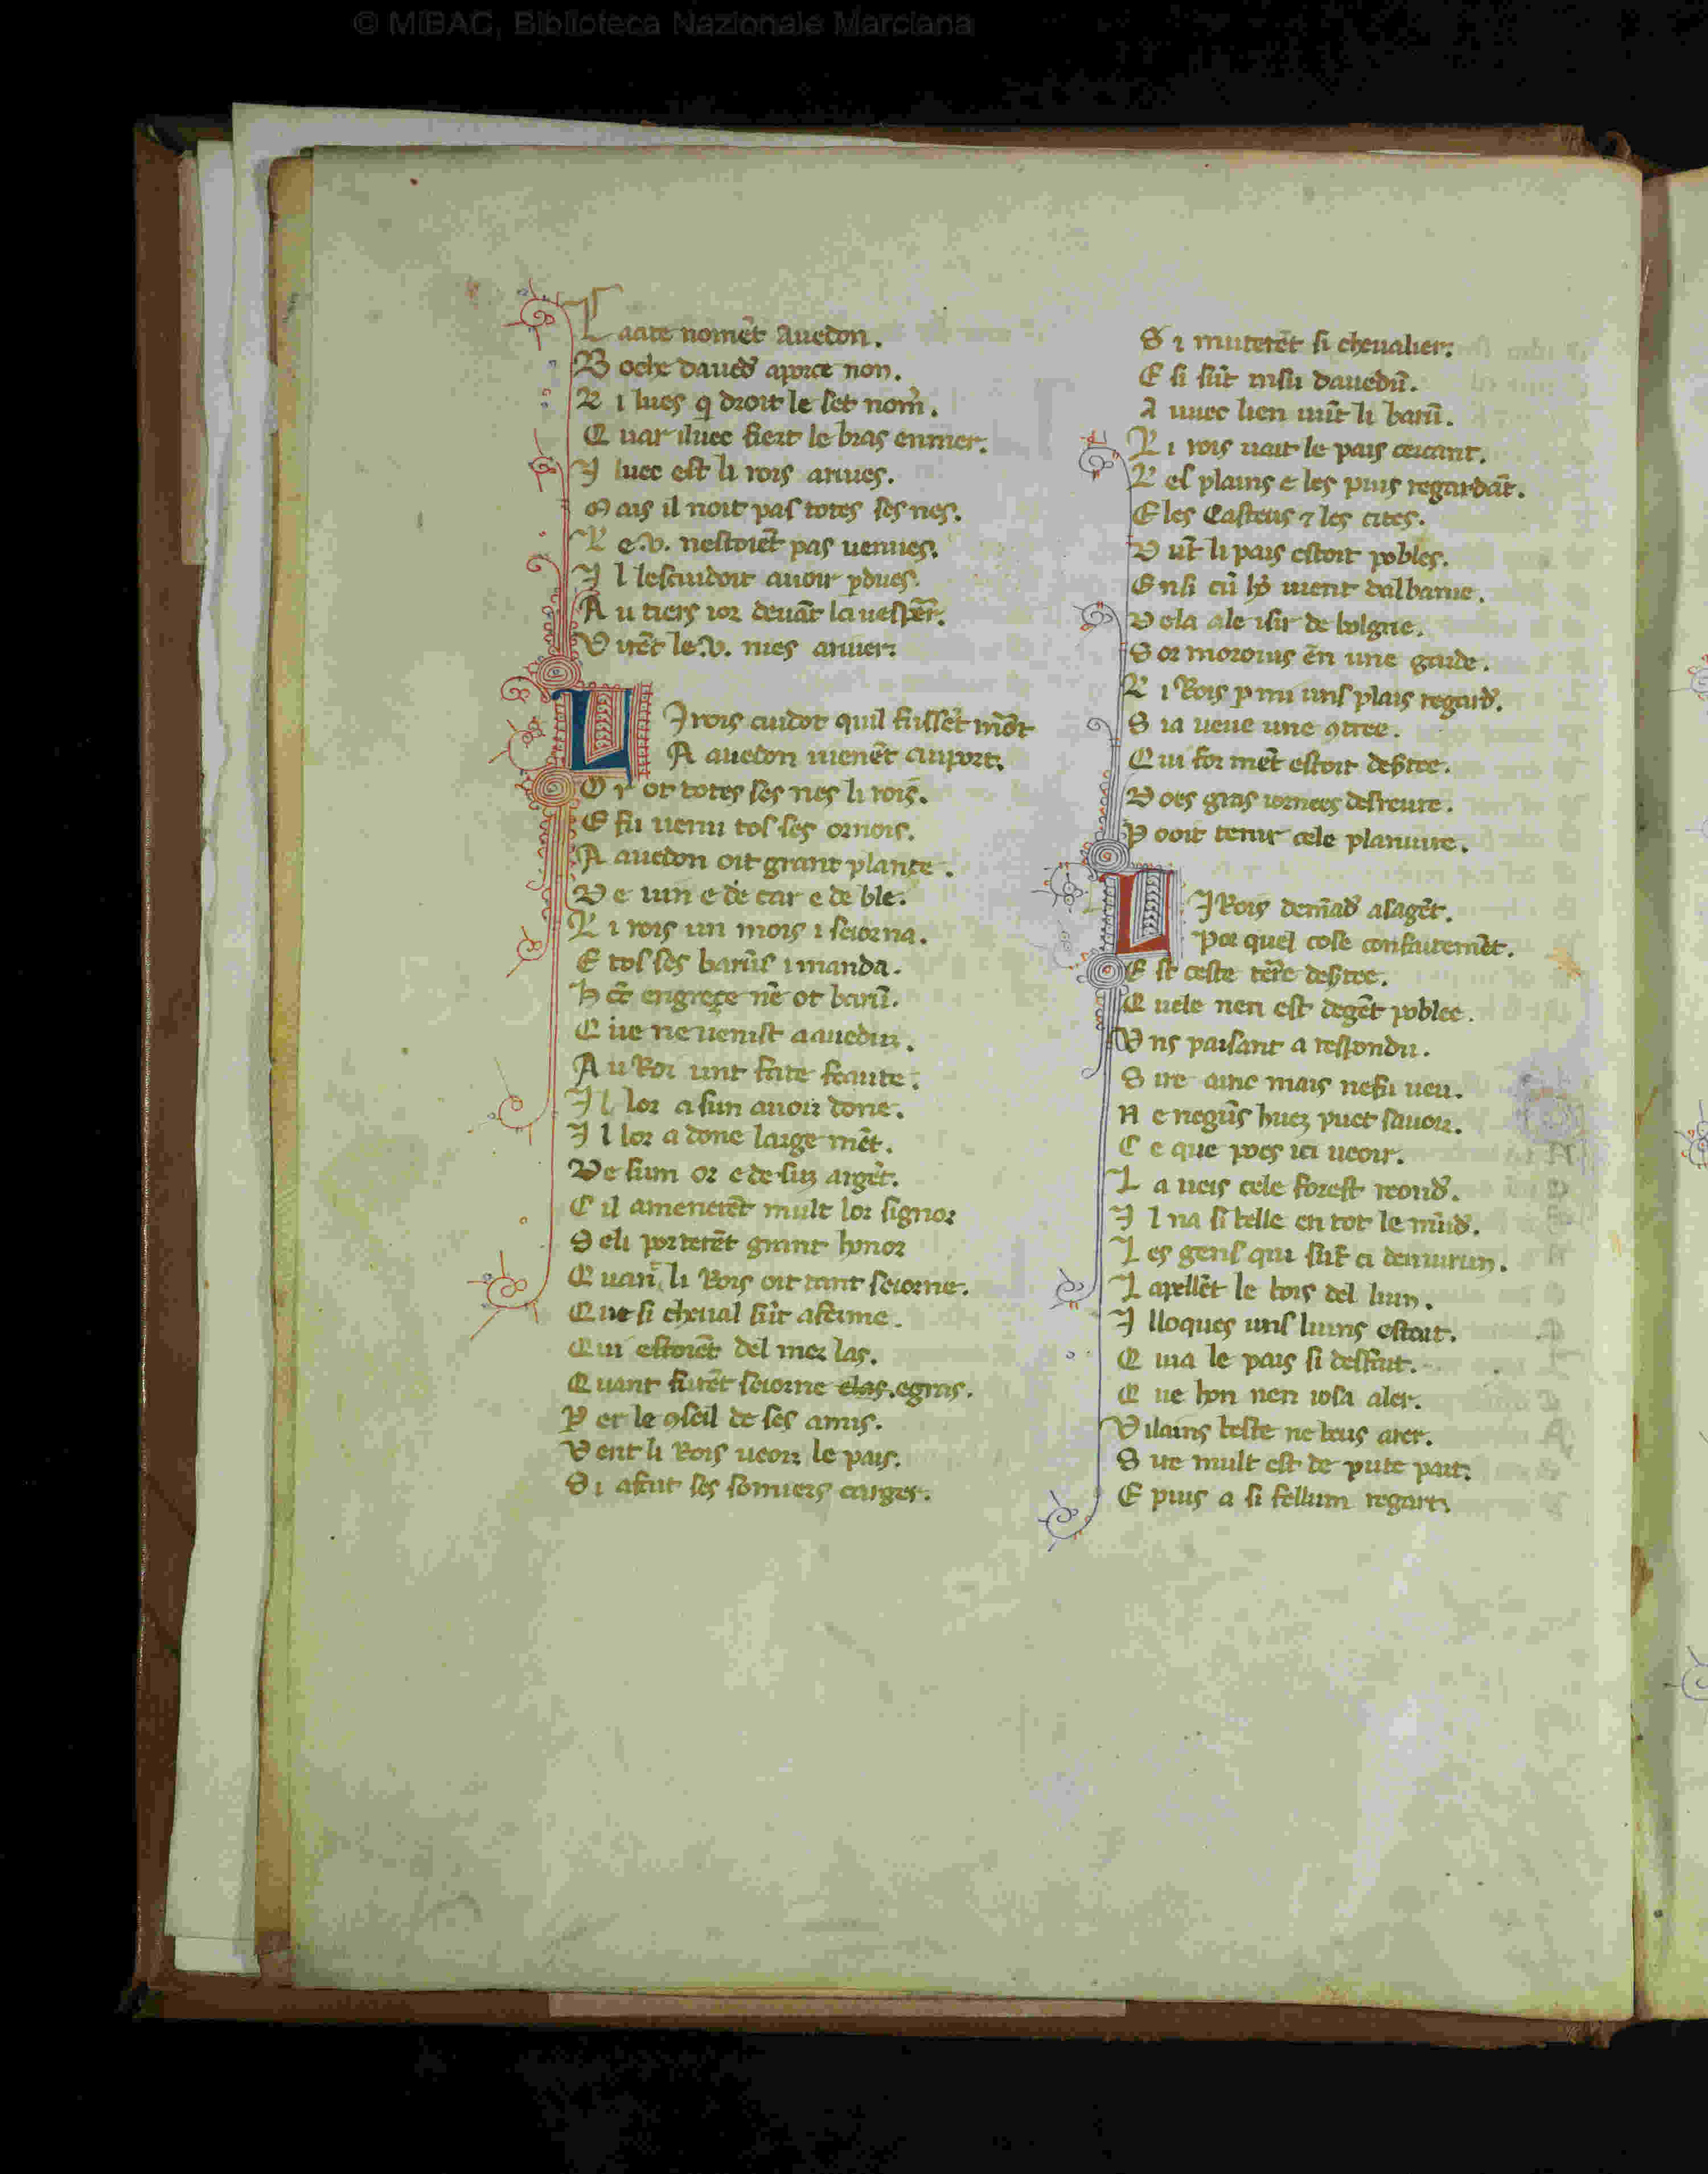 © MiBAC, Biblioteca Nazionale Marciana
L acite nomẽt Auedon.
B oche dauedõ aporte non.
L i lues q droit le set nom̃.
Q uar iluec fiert le bras enmer.
I luec est li rois ariues.
M ais il noit pas totes ses nes.
L e .v. nestoiẽt pas uenues.
I l lescuidoit auoir pdues.
A u tiers ior deuãt la uesp̃er.
V irẽt le .v. nies ariuer.
L I rois cuidot quil fussẽt mõt
A auedon uienẽt auport.
O r ot totes ses nes li rois.
E fu uenu tos ses ornois.
A auedon oit grant plante.
D e uin e de car e de ble.
L i rois un mois i seiorna.
E tos ses barũs i manda.
H õ engreçe nẽ ot barũ.
Q ue ne uenist a auedun.
A u Roi unt faite feaute.
I l lor a sun auoir done.
I l lor a done large mẽt.
D e sum or e de sun argẽt.
C il amenerẽt mult lor signor
S eli porterẽt grant honor
Q uant li Rois oit tant seiorne.
Q ue si cheual sũt afermе.
Q ui estoiẽt del mer las.
Q uant furẽt seiorne elas. egras.
P er le ꝯseil de ses amis.
V ent li Rois ueoir le pais.
S i afait ses somiers carger.
S i muterẽt si cheualier.
E si sũt insu dauedũ.
A uuec lien uũt li barũ.
L i rois uait le pais cercant.
L es plains e les puis regardãt.
E les Casteus ⁊ les cites.
D ũt li pais estoit pobles.
Ensi cũ lõ uient dalbanie.
D ela ale isir de bolgrie.
S or moroius ẽn une garde.
L i Rois p mi uns plais regard̃.
S ia ueue une ꝯtree.
Q ui for mẽt estoit desertee.
D oes gras iornees desreure.
P ooit tenir cele planure.
L I Rois demãd̃ asagẽt.
Por quel cose confaitemẽt.
E st ceste tẽre desertee.
Q uele nen est degẽt poblee.
V ns paisant a respondu.
S ire ainc mais nefu ueu.
N e negũs huez puet sauoir.
C e que poes ici ueoir.
L a ueis cele forest reond̃.
I l na si belle en tot le mũd̃.
L es gens qui sũt ci demurun.
L apellẽt le bois del liun.
I lloques uns liuns estait.
Q uia le pais si desfait.
Q ue hon nen iosa aler.
V ilains beste ne beus arer.
S ire mult est de pute part.
E puis a si fellum regart.